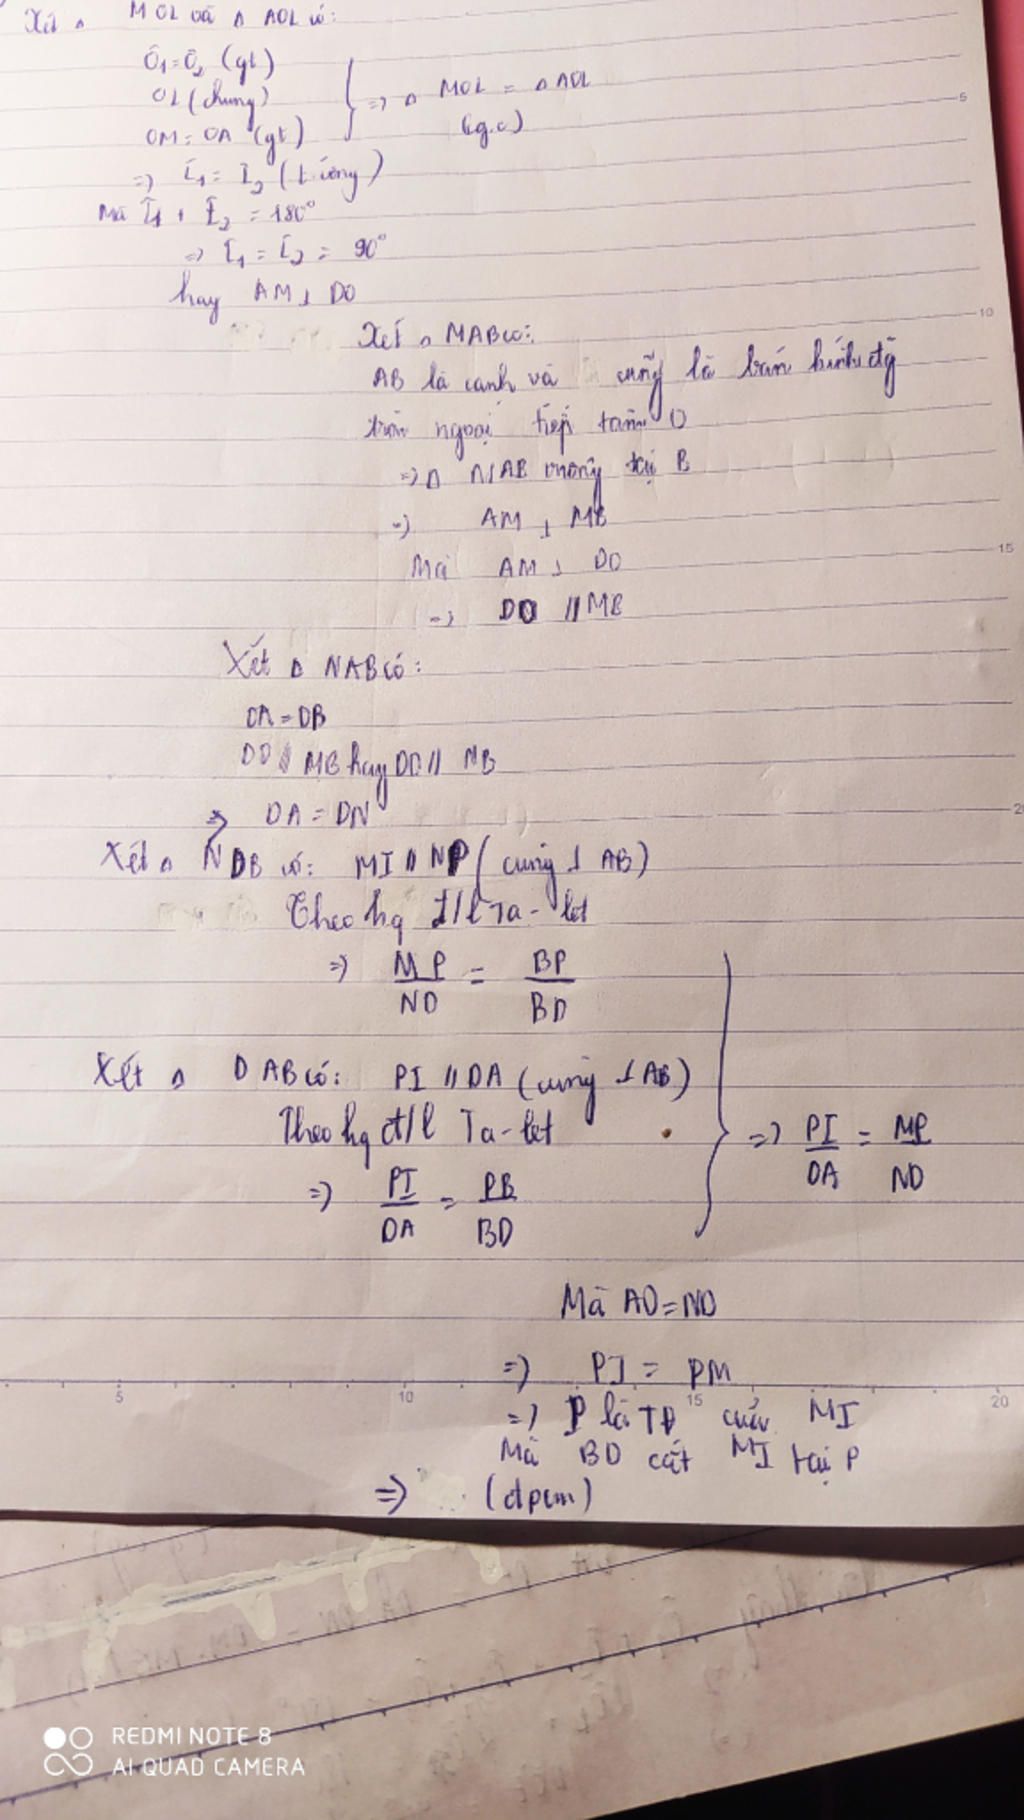 Xét Δ MOL và Δ AOL có:
Ô1 = Ô2 (gt)
OL (chung)
OM = OA (gt)
=> Δ MOL = Δ AOL
(c.g.c)
=> L̂1 = L̂2 (t.ứng)
Mà L̂1 + L̂2 = 180°
=> L̂1 = L̂2 = 90°
hay AM ⊥ DO
Xét Δ MAB có:
AB là cạnh và cũng là bán kính đg
tròn ngoại tiếp tâm O
=> Δ MAB vuông tại B
=> AM ⊥ MB
Mà AM ⊥ DO
=> DO // MB
Xét Δ NAB có:
OA = OB
DO // MB hay DO // NB
=> DA = DN
Xét Δ NDB có: MI // NP (cùng ⊥ AB)
Theo hq đ/l Ta-let
=> MP/ND = BP/BD
Xét Δ DAB có: PI // DA (cùng ⊥ AB)
Theo hq đ/l Ta-let
=> PI/DA = PB/BD
=> PI/DA = MP/ND
Mà AD = ND
=> PI = PM
=> P là TĐ của MI
Mà BD cắt MI tại P
=> (đpcm)
5
10
15
20
5
10
15
20
REDMI NOTE 8
AI QUAD CAMERA